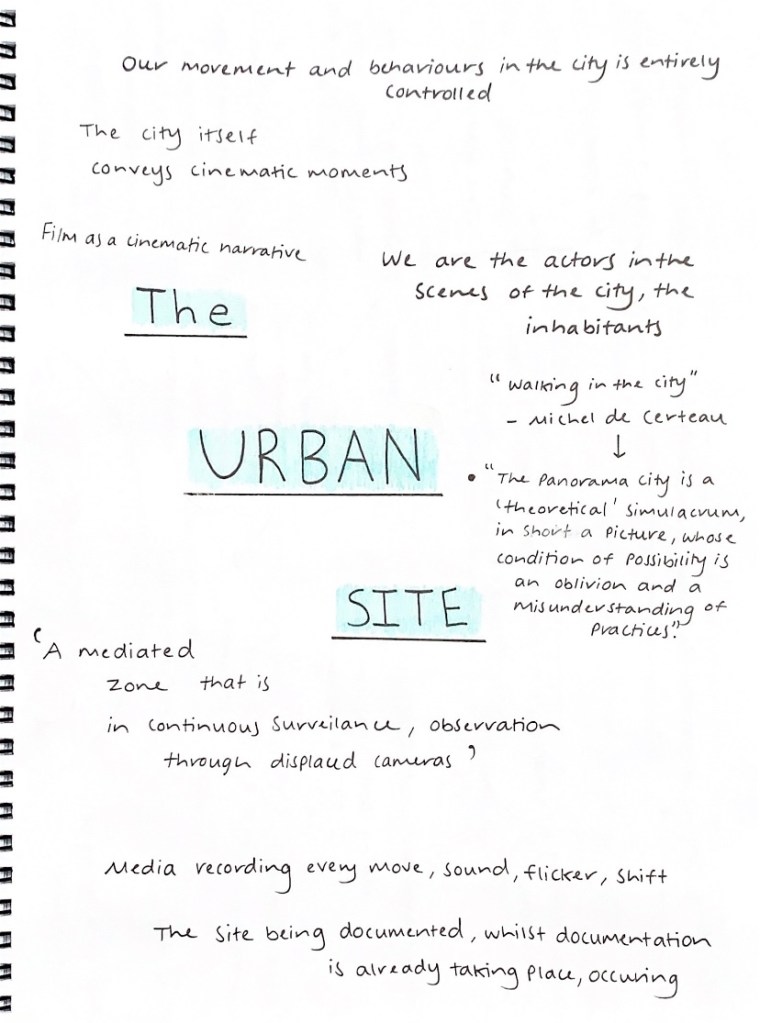 Our movement and behaviours in the city is entirely
controlled
The city itself
conveys cinematic moments
Film as a cinematic narrative
We are the actors in the
scenes of the city, the
inhabitants
The
"Walking in the city"
- Michel de Certeau
↓
URBAN
• "The Panorama city is a
'theoretical' simulacrum,
in short a picture, whose
condition of possibility is
an oblivion and a
misunderstanding of
practices."
SITE
'A mediated
zone that is
in continuous surveilance, observation
through displaud cameras'
Media recording every move, sound, flicker, shift
The site being documented, whilst documentation
is already taking place, occuring